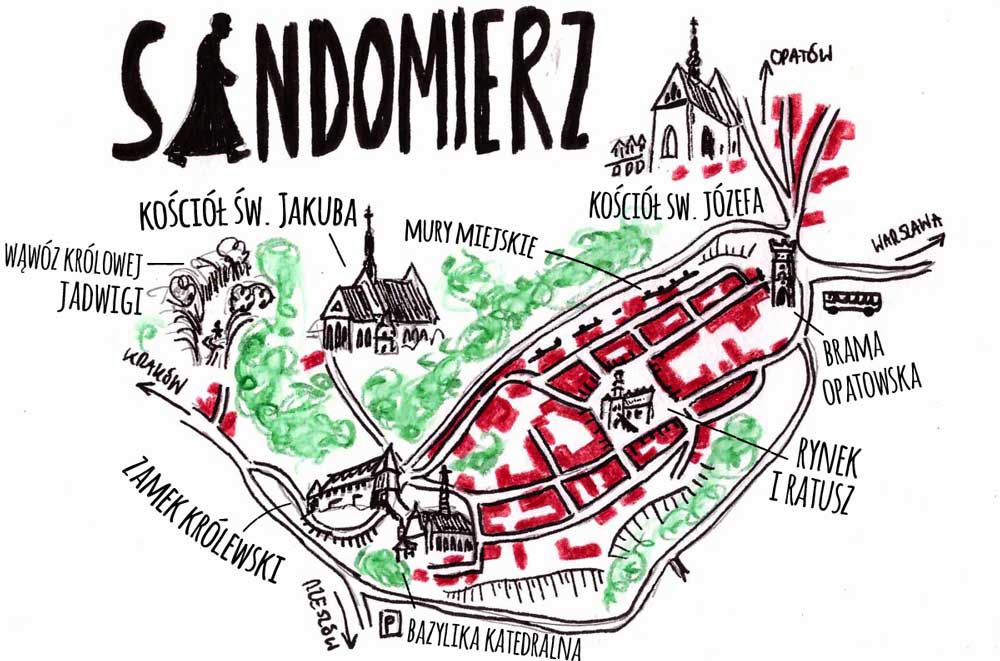 SANDOMIERZ
OPATÓW
KOŚCIÓŁ ŚW. JAKUBA
KOŚCIÓŁ ŚW. JÓZEFA
MURY MIEJSKIE
WARSZAWA
WĄWÓZ KRÓLOWEJ
JADWIGI
KRAKÓW
BRAMA
OPATOWSKA
RYNEK
I RATUSZ
ZAMEK KRÓLEWSKI
RZESZÓW
P
BAZYLIKA KATEDRALNA